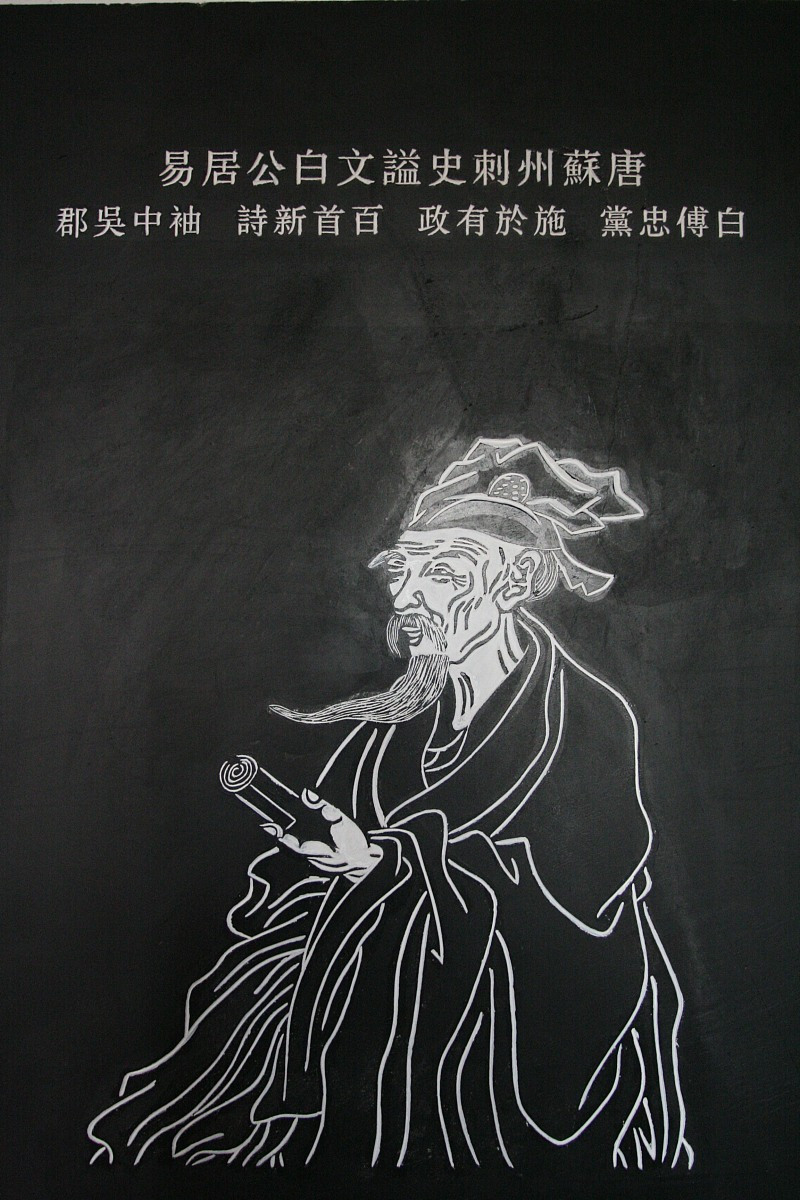 唐蘇州刺史謚文白公居易
白傅忠黨 施於有政 百首新詩 袖中吳郡